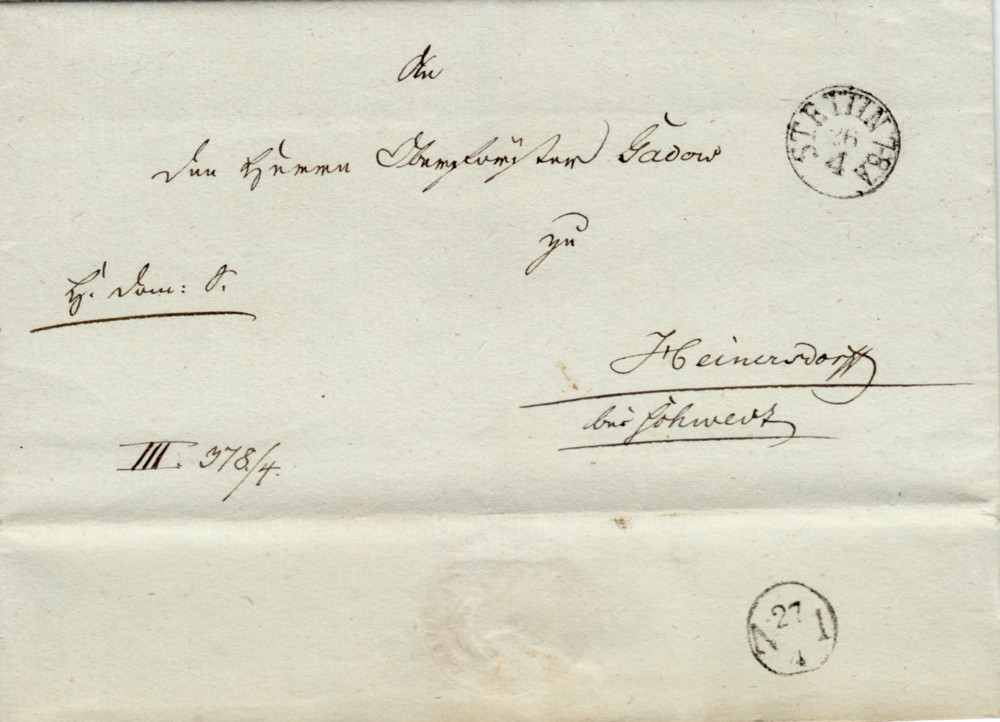 An
STETTIN 7-8A
26
4
den Herrn Oberförster Gadow
zu
H. Dom: S.
Heinersdorff
bei Schwedt
III. 378/4.
27
4
1